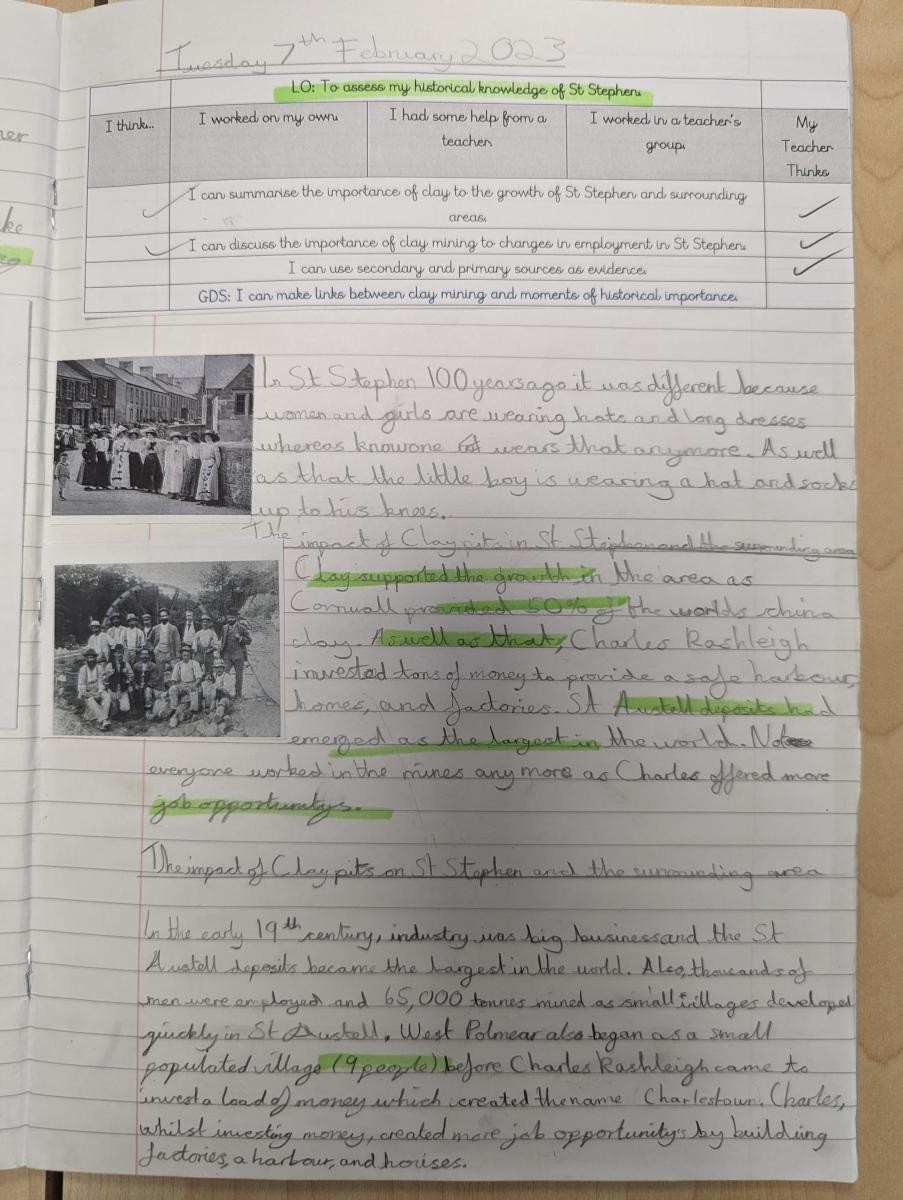 Tuesday 7th February 2023
LO: To assess my historical knowledge of St Stephen.
I think...
I worked on my own.
I had some help from a
teacher.
I worked in a teacher's
group.
My
Teacher
Thinks
I can summarise the importance of clay to the growth of St Stephen and surrounding
areas.
I can discuss the importance of clay mining to changes in employment in St Stephen.
I can use secondary and primary sources as evidence.
GDS: I can make links between clay mining and moments of historical importance.
In St Stephen 100 years ago it was different because
women and girls are wearing hats and long dresses
whereas knowone wears that anymore. As well
as that the little boy is wearing a hat and socks
up to his knees.
The impact of Clay pits in St Stephen and the surrounding area
Clay supported the growth in the area as
Cornwall provided 50% of the worlds china
clay. As well as that, Charles Rashleigh
invested tons of money to provide a safe harbour,
homes, and factories. St Austell deposits had
emerged as the largest in the world. Not
everyone worked in the mines any more as Charles offered more
job opportunitys.
The impact of Clay pits on St Stephen and the surrounding area
In the early 19th century, industry was big business and the St
Austell deposits became the largest in the world. Also, thousands of
men were employed and 65,000 tonnes mined as small villages developed
quickly in St Austell. West Polmear also began as a small
populated village (9 people) before Charles Rashleigh came to
invest a load of money which created the name Charlestown. Charles,
whilst investing money, created more job opportunity's by building
factories, a harbour, and houses.